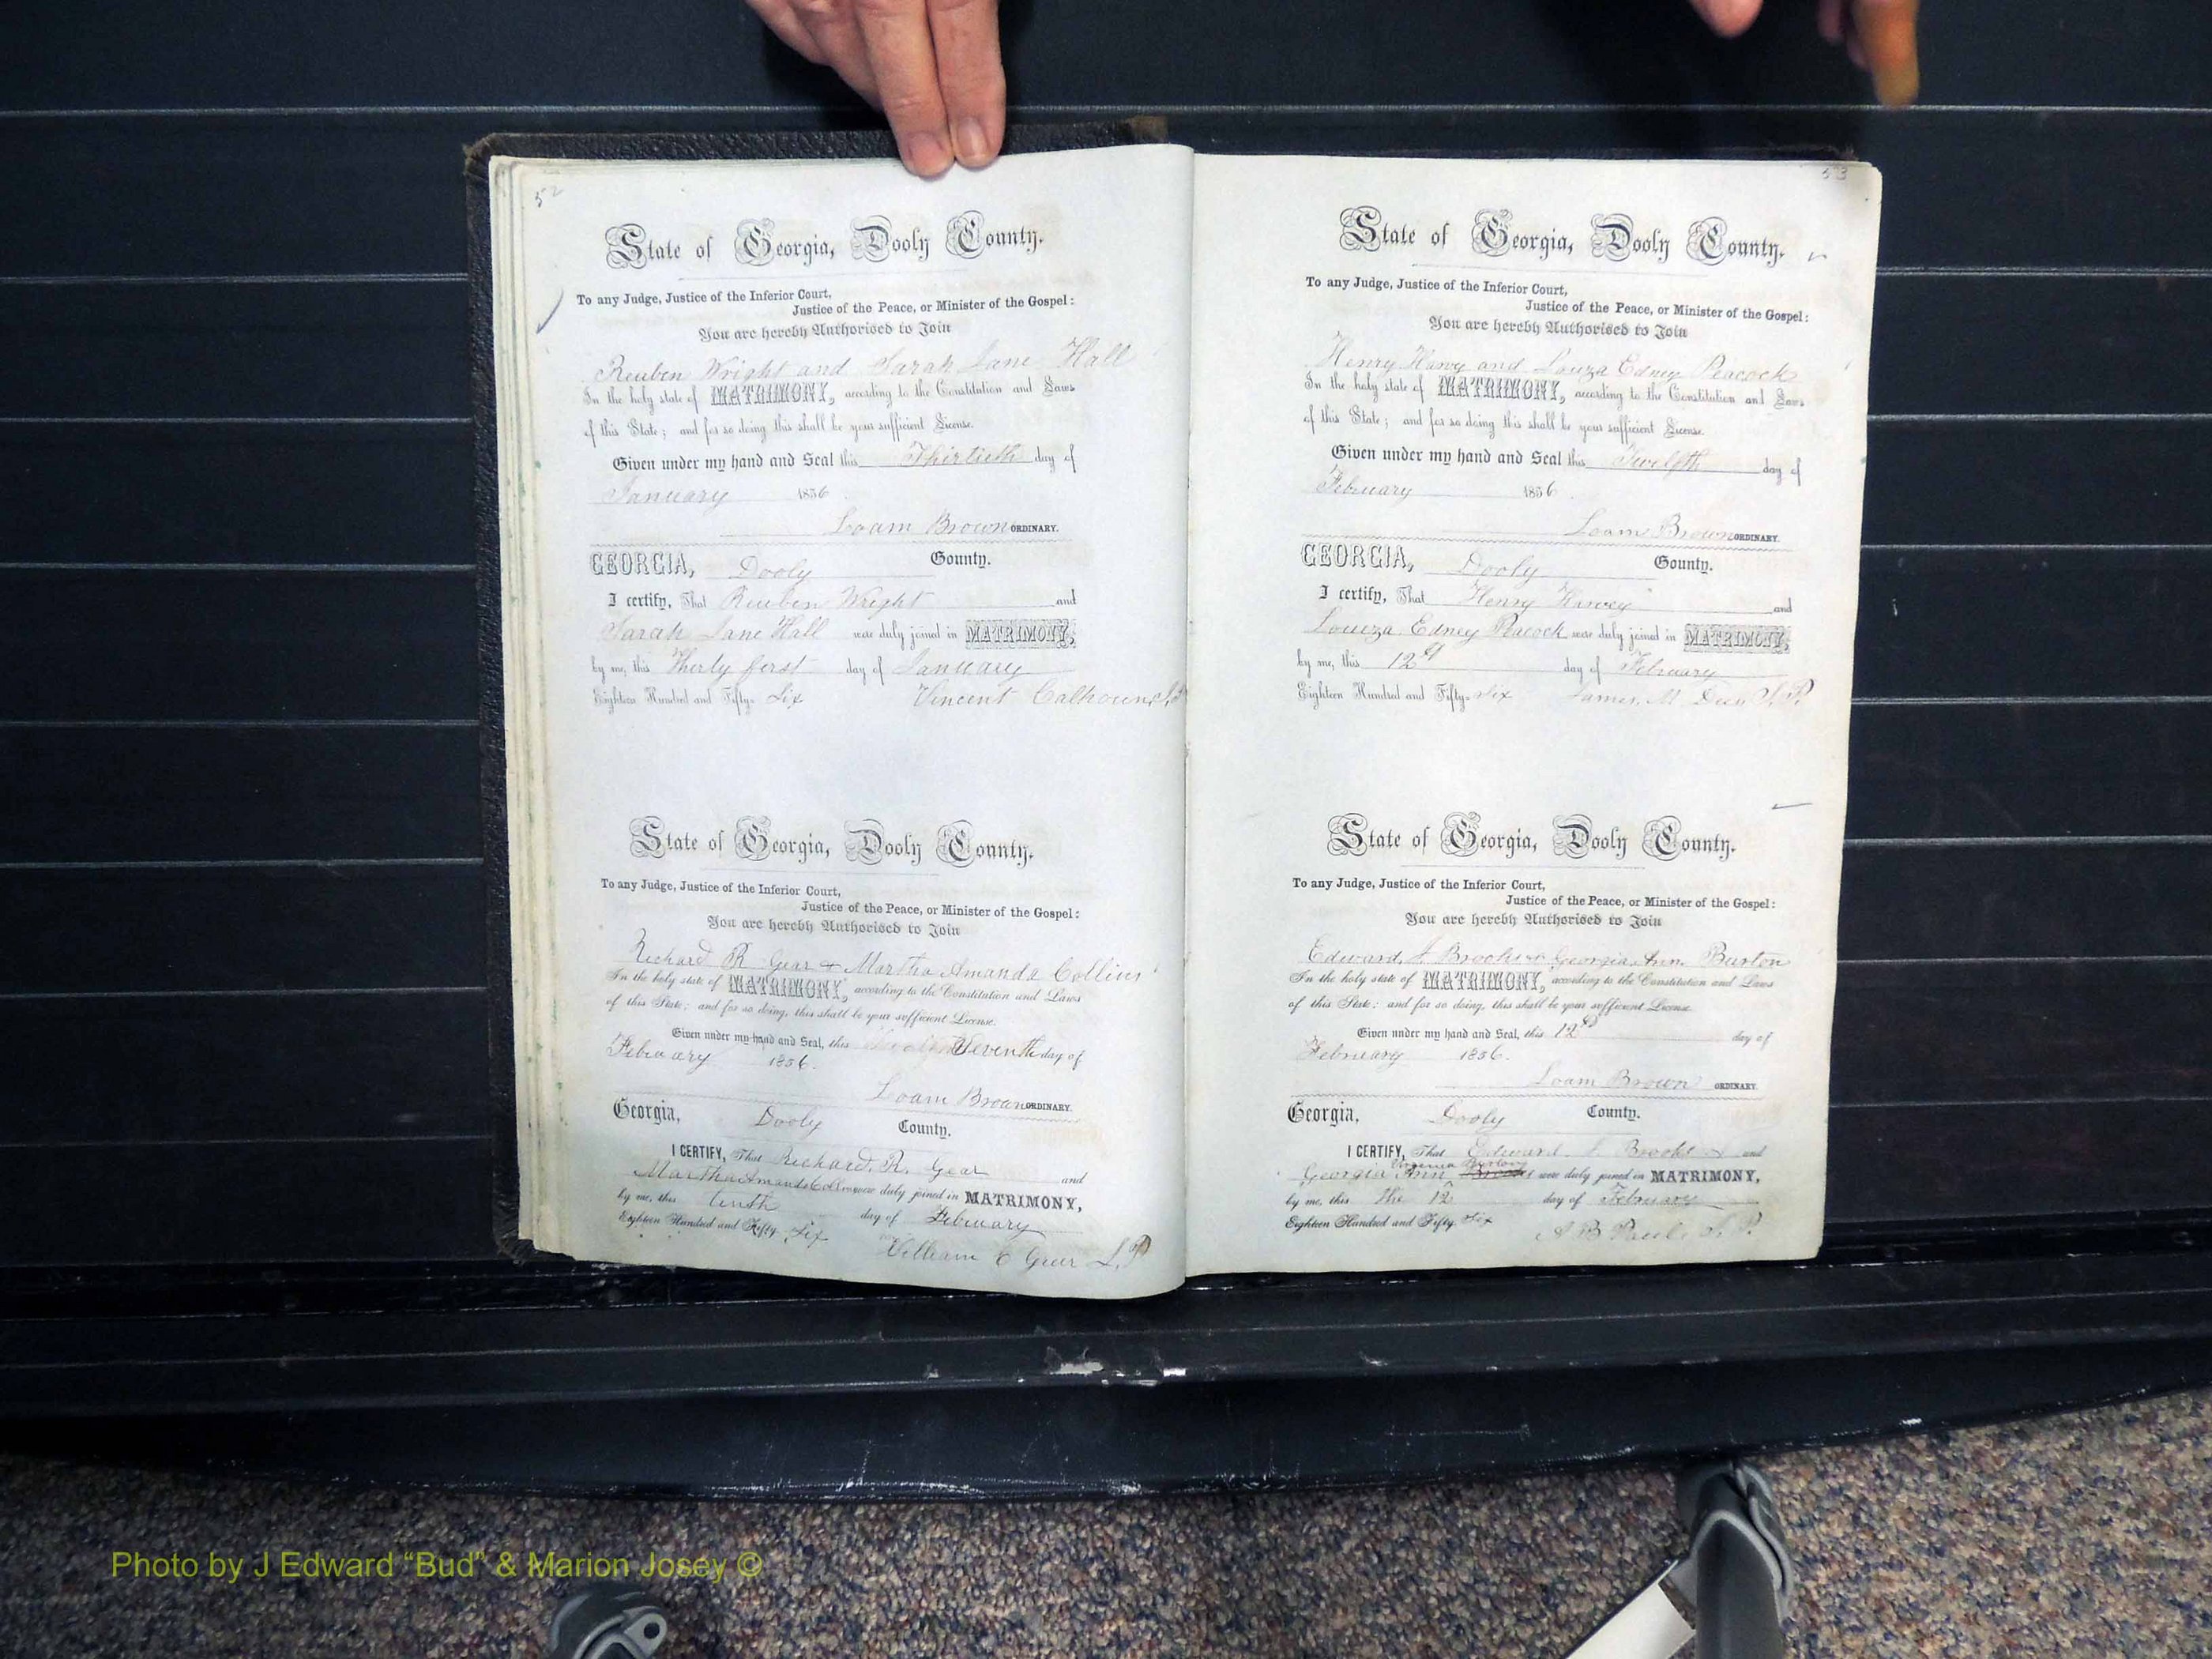 52
State of Georgia, Dooly County.
To any Judge, Justice of the Inferior Court,
Justice of the Peace, or Minister of the Gospel:
You are hereby Authorised to Join
Reuben Wright and Sarah Jane Hall
In the holy state of MATRIMONY, according to the Constitution and Laws
of this State; and for so doing this shall be your sufficient License.
Given under my hand and Seal this Thirtieth day of
January 1856
Loam Brown ORDINARY.
GEORGIA, Dooly County.
I certify, That Reuben Wright and
Sarah Jane Hall were duly joined in MATRIMONY,
by me, this Thirty first day of January
Eighteen Hundred and Fifty- Six Vincent Calhoun
State of Georgia, Dooly County.
To any Judge, Justice of the Inferior Court,
Justice of the Peace, or Minister of the Gospel:
You are hereby Authorised to Join
Richard R Gear & Martha Amanda Collins
In the holy state of MATRIMONY, according to the Constitution and Laws
of this State: and for so doing, this shall be your sufficient License.
Given under my hand and Seal, this Seventh day of
February 1856.
Loam Brown ORDINARY.
Georgia, Dooly County.
I CERTIFY, That Richard. R. Gear and
Martha Amanda Collins were duly joined in MATRIMONY,
by me, this tenth day of February
Eighteen Hundred and Fifty Six
William C Greer
53
State of Georgia, Dooly County.
To any Judge, Justice of the Inferior Court,
Justice of the Peace, or Minister of the Gospel:
You are hereby Authorised to Join
Henry Harvy and Louza Edney Peacock
In the holy state of MATRIMONY, according to the Constitution and Laws
of this State; and for so doing this shall be your sufficient License.
Given under my hand and Seal this Twelfth day of
February 1856.
Loam Brown ORDINARY.
GEORGIA, Dooly County.
I certify, That Henry Harvey and
Louiza Edney Peacock were duly joined in MATRIMONY,
by me, this 12th day of February
Eighteen Hundred and Fifty- Six James. M J.P.
State of Georgia, Dooly County.
To any Judge, Justice of the Inferior Court,
Justice of the Peace, or Minister of the Gospel:
You are hereby Authorised to Join
Edward. J. Brooks Georgia Ann Burton
In the holy state of MATRIMONY, according to the Constitution and Laws
of this State: and for so doing, this shall be your sufficient License.
Given under my hand and Seal, this 12th day of
February 1856.
Loam Brown ORDINARY.
Georgia, Dooly County.
I CERTIFY, That Edward. J. Brooks and
Virginia Burton
Georgia Ann Brooks were duly joined in MATRIMONY,
by me, this the 12 day of February
Eighteen Hundred and Fifty Six
A B Paul J. P.
Photo by J Edward “Bud” & Marion Josey ©